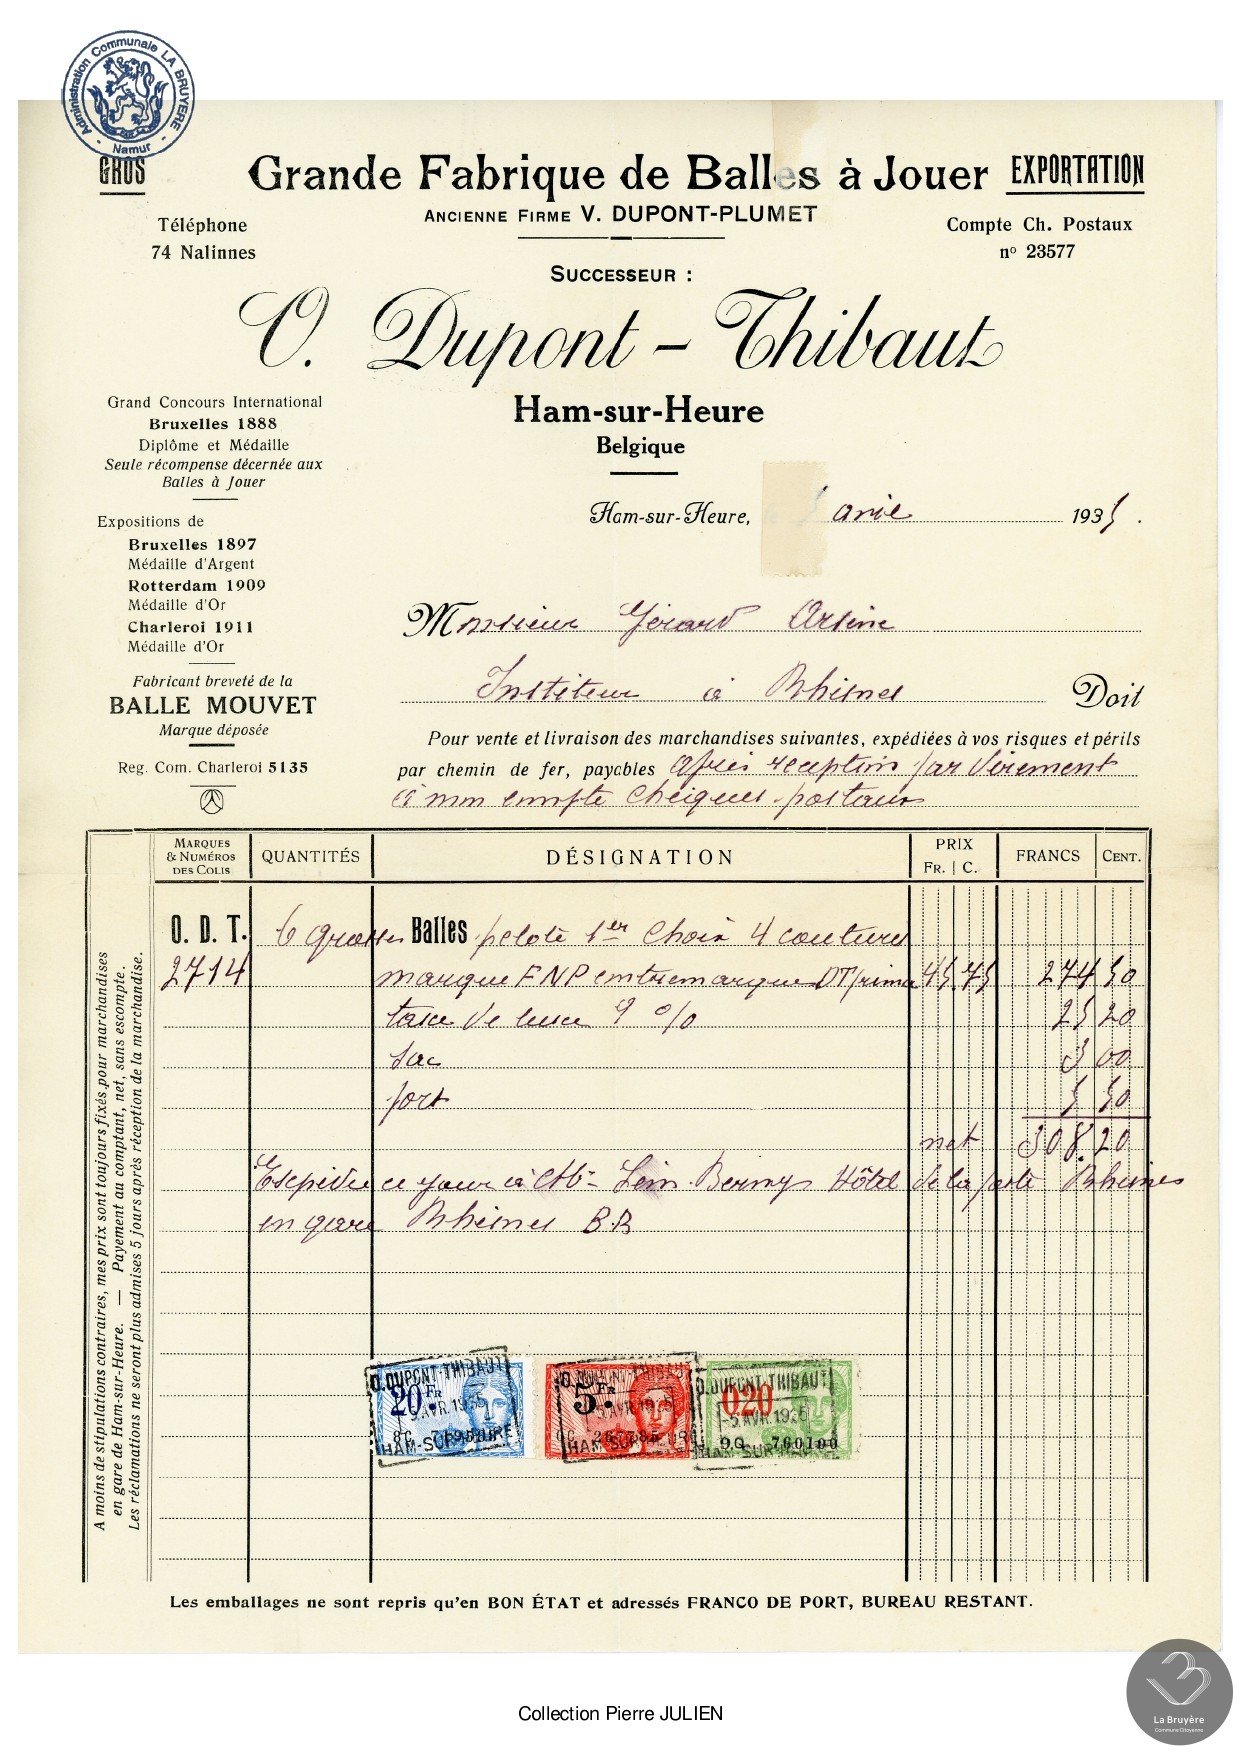 Administration Communale LA BRUYÈRE
- Namur -
GROS
Grande Fabrique de Balles à Jouer
EXPORTATION
ANCIENNE FIRME V. DUPONT-PLUMET
Téléphone
74 Nalinnes
Compte Ch. Postaux
nº 23577
SUCCESSEUR :
O. Dupont-Thibaut
Ham-sur-Heure
Belgique
Grand Concours International
Bruxelles 1888
Diplôme et Médaille
Seule récompense décernée aux
Balles à Jouer
Expositions de
Bruxelles 1897
Médaille d'Argent
Rotterdam 1909
Médaille d'Or
Charleroi 1911
Médaille d'Or
Fabricant breveté de la
BALLE MOUVET
Marque déposée
Reg. Com. Charleroi 5135
Ham-sur-Heure, 5 avril 1935.
Monsieur Gérard Arsène
Instituteur à Rhisnes Doit
Pour vente et livraison des marchandises suivantes, expédiées à vos risques et périls
par chemin de fer, payables après reception par virement
à mon compte chèques-postaux
MARQUES & NUMÉROS DES COLIS
QUANTITÉS
DÉSIGNATION
PRIX FR. | C.
FRANCS
CENT.
O. D. T. 6 grosses Balles pelote 1er choix 4 coutures
2714 marque FNP contremarque DT/prima 45 75 274 50
taxe de luxe 9 % 25 20
sac 3 00
port 5 50
net 308.20
Expédié ce jour à Mr Léon Berny Hôtel de la poste Rhisnes
en gare Rhisnes B.B
A moins de stipulations contraires, mes prix sont toujours fixés pour marchandises
en gare de Ham-sur-Heure. — Payement au comptant, net, sans escompte.
Les réclamations ne seront plus admises 5 jours après réception de la marchandise.
O.DUPONT-THIBAUT
20 FR
5 AVR.1935
HAM-SUR-HEURE
O.DUPONT-THIBAUT
5 FR.
5 AVR.1935
HAM-SUR-HEURE
O.DUPONT-THIBAUT
0.20
-5 AVR.1935
9Q 760100
HAM-SUR-HEURE
Les emballages ne sont repris qu'en BON ÉTAT et adressés FRANCO DE PORT, BUREAU RESTANT.
Collection Pierre JULIEN
La Bruyère
Commune Citoyenne